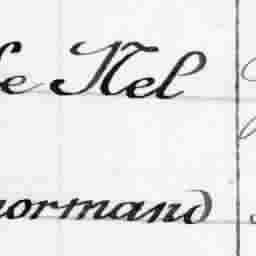 le Nel
normand